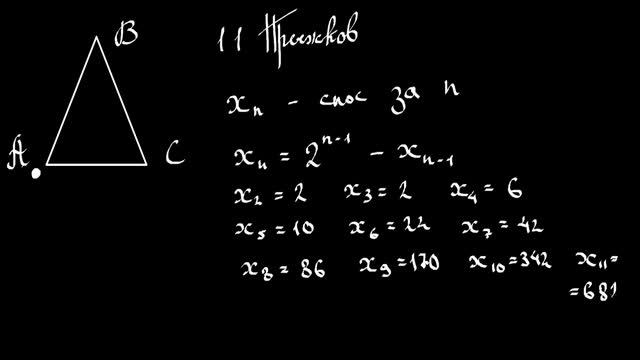 B 11 Прыжков
A C
xₙ - спос за n
xₙ = 2ⁿ⁻¹ - xₙ₋₁
x₂ = 2 x₃ = 2 x₄ = 6
x₅ = 10 x₆ = 22 x₇ = 42
x₈ = 86 x₉ = 170 x₁₀ = 342 x₁₁ =
= 682